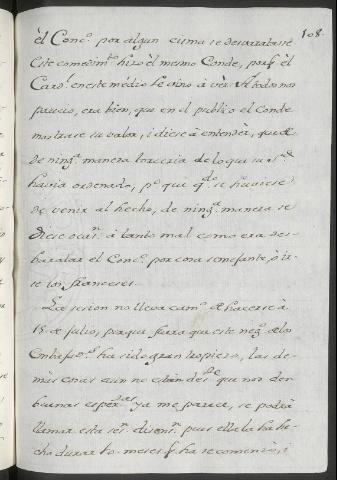 108.
el Conc.º por algun cisma se desvaratasse
este comedim.to hizo el mesmo Conde, porq̃ el
Card.l en este médio le vino à vèr. A todos nos
pareció, era bien, que en el publico el Conde
mostrase su valor, i diese à entendèr, que
de ning.a manera torceria de lo que su S.d
havia ordenado, p.º que q.do se huviese
de venir al hecho, de ning.a manera se
diese ocas.n à tanto mal como era des-
baratar el Conc.º por cosa semejante, ò ir-
se los franceses.
La sesion no lleva cam.º de hacerse à
15. de Julio, porque fuera que este neg.º de los
Embax.es ha sido gran tropiezo, las de-
màs cosas aun no están de que nos den
buenas esper.zas ya me parece, se podrà
llamar esta ses.n pues ella ha he-
cho durar 10. meses q̃ ha se comenzò, i